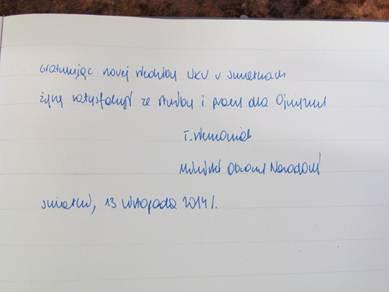 Gratulując nowej siedziby WKU w Suwałkach
życzę satysfakcji ze służby i pracy dla Ojczyzny
T. Siemoniak
Minister Obrony Narodowej
Suwałki, 13 listopada 2014 r.